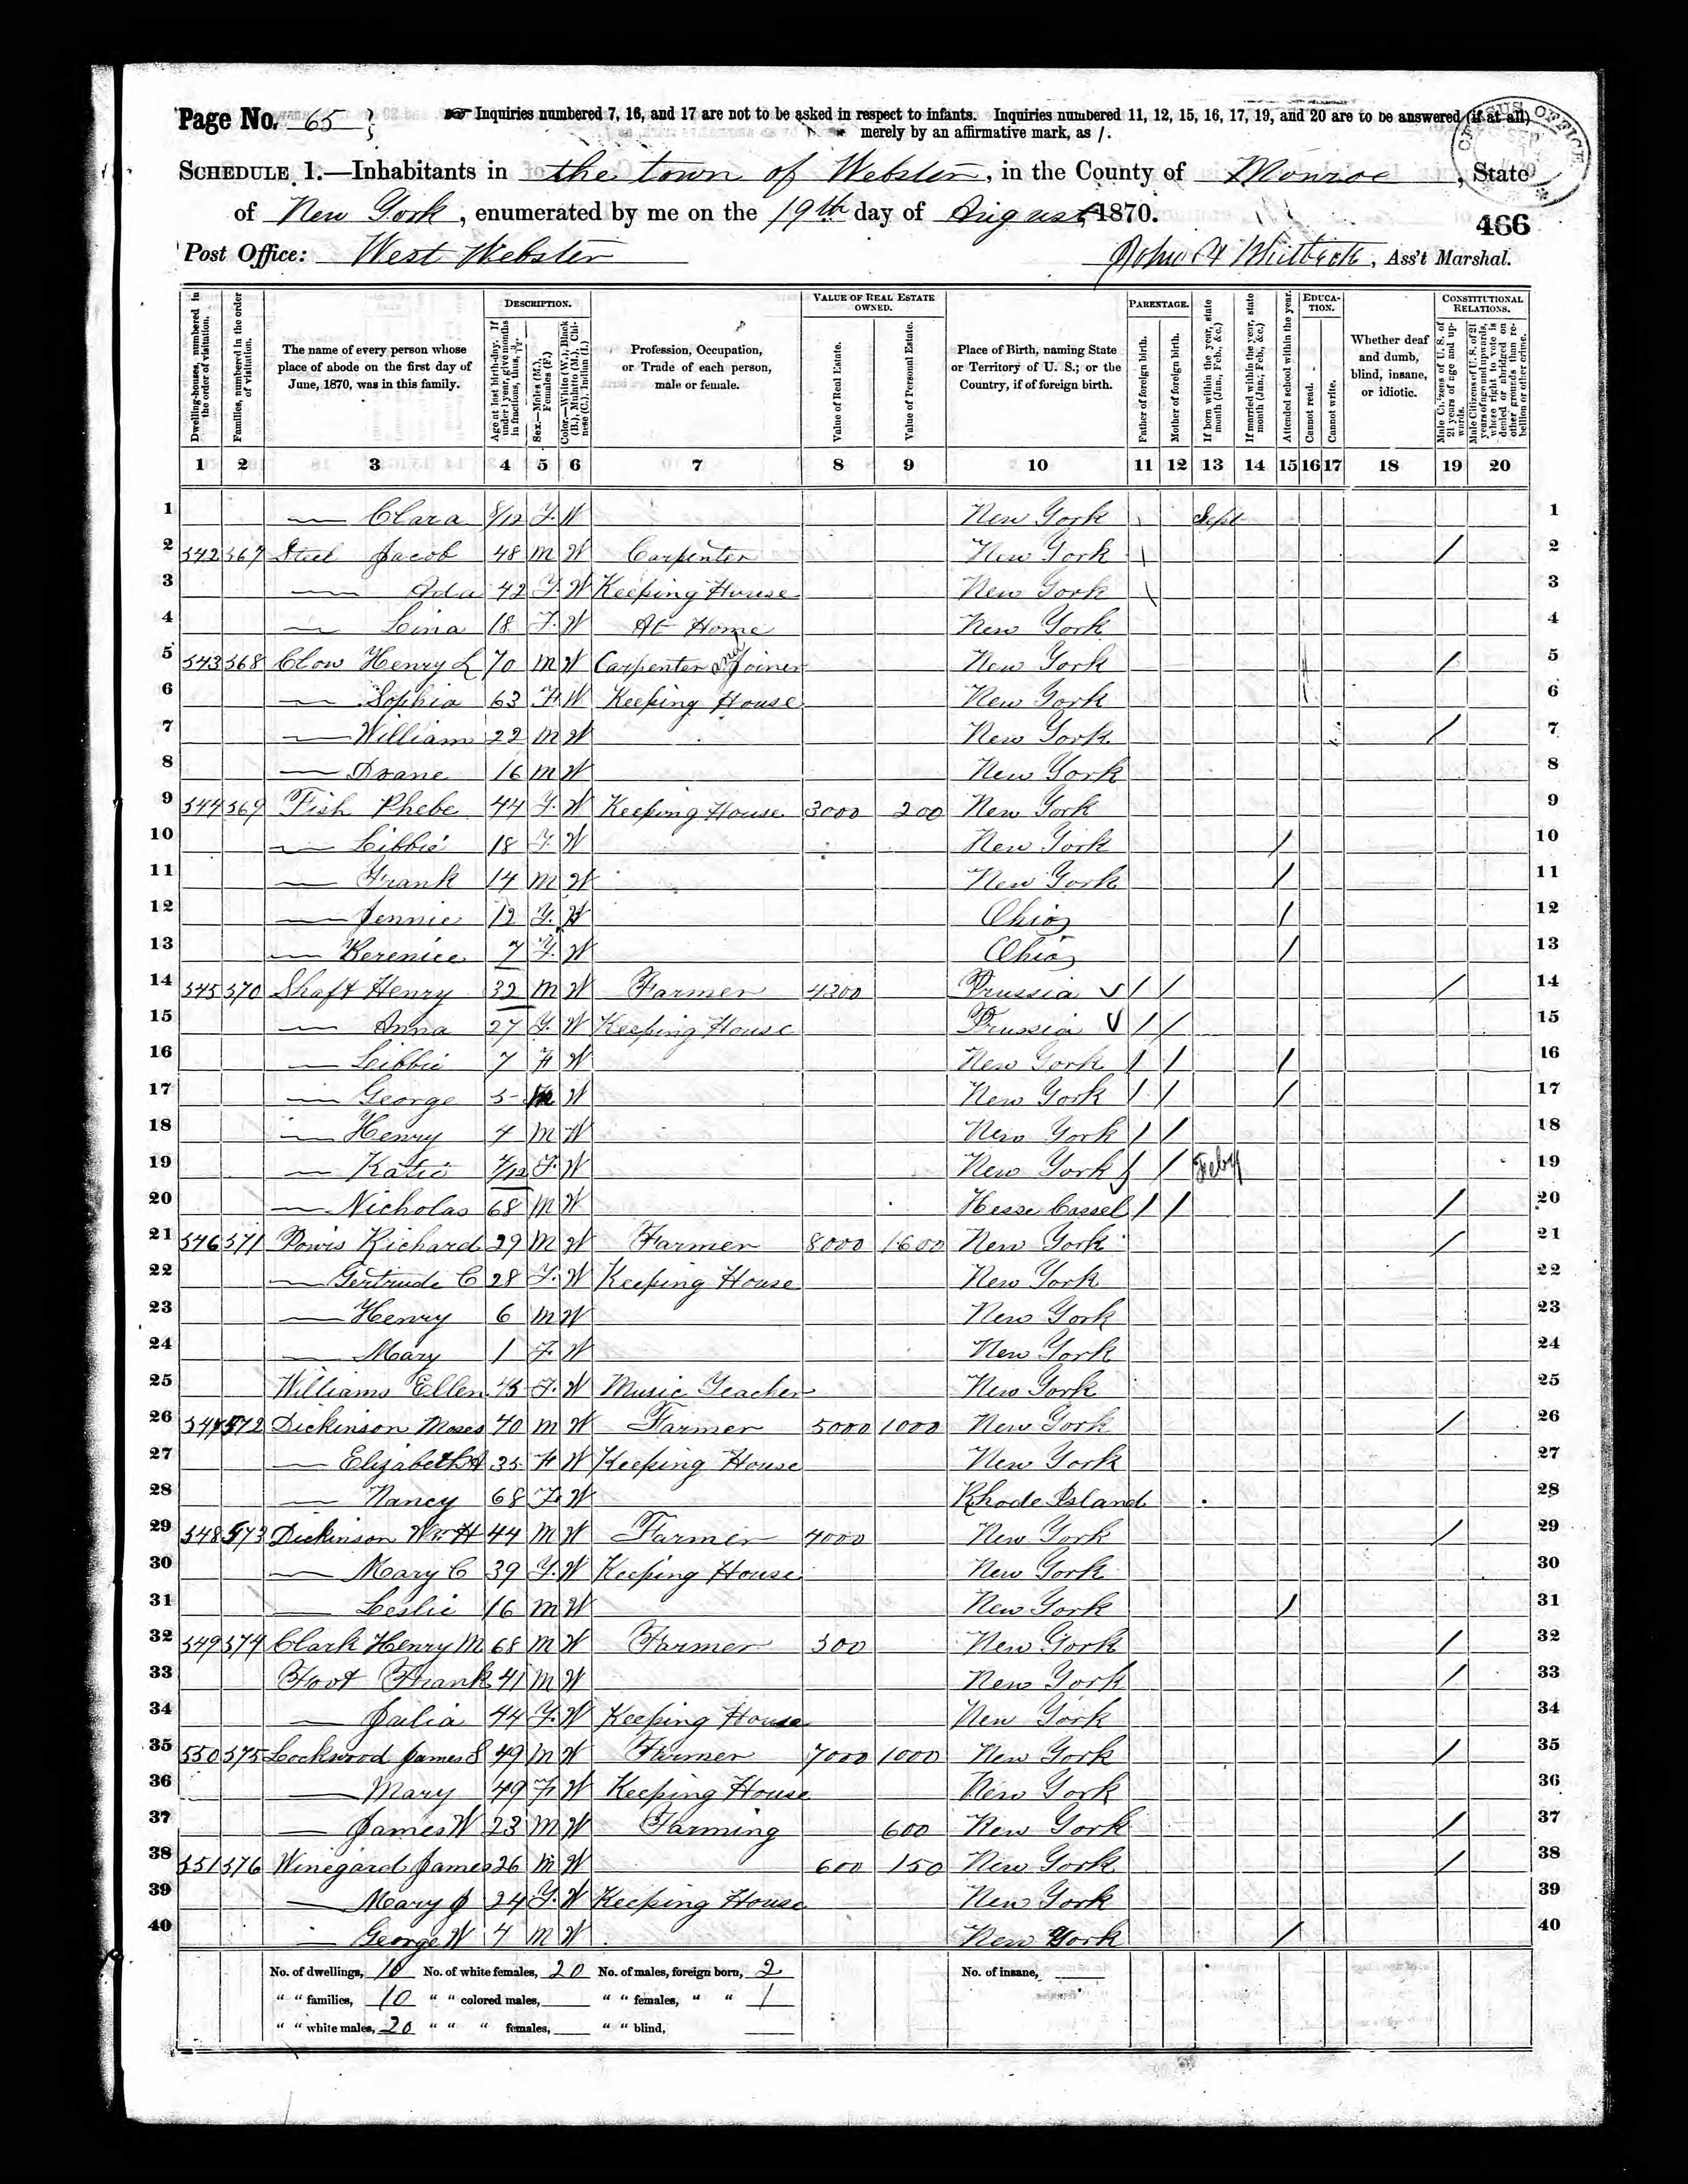 Page No. 65
Inquiries numbered 7, 16, and 17 are not to be asked in respect to infants. Inquiries numbered 11, 12, 15, 16, 17, 19, and 20 are to be answered (if at all)
merely by an affirmative mark, as /.
CENSUS OFFICE
SCHEDULE 1.—Inhabitants in the town of Webster, in the County of Monroe, State
of New York, enumerated by me on the 19th day of August, 1870.
466
Post Office: West Webster
John Whitbeck, Ass't Marshal.
Dwelling-houses, numbered in the order of visitation.
Families, numbered in the order of visitation.
The name of every person whose place of abode on the first day of June, 1870, was in this family.
DESCRIPTION.
Age at last birth-day. If under 1 year, give months in fractions, thus, 3/12.
Sex.—Males (M.), Females (F.)
Color.—White (W.), Black (B.), Mulatto (M.), Chinese (C.), Indian (I.)
Profession, Occupation, or Trade of each person, male or female.
VALUE OF REAL ESTATE OWNED.
Value of Real Estate.
Value of Personal Estate.
Place of Birth, naming State or Territory of U. S.; or the Country, if of foreign birth.
PARENTAGE.
Father of foreign birth.
Mother of foreign birth.
If born within the year, state month (Jan., Feb., &c.)
If married within the year, state month (Jan., Feb., &c.)
Attended school within the year.
EDUCATION.
Cannot read.
Cannot write.
Whether deaf and dumb, blind, insane, or idiotic.
CONSTITUTIONAL RELATIONS.
Male Citizens of U. S. of 21 years of age and upwards.
Male Citizens of U. S. of 21 years of age and upwards, whose right to vote is denied or abridged on other grounds than rebellion or other crime.
1 2 3 4 5 6 7 8 9 10 11 12 13 14 15 16 17 18 19 20
1 — Clara 8/12 F W New York Sept 1
2 542 567 Steel Jacob 48 M W Carpenter New York / / 2
3 — Ada 42 F W Keeping House New York / 3
4 — Lina 18 F W At Home New York 4
5 543 568 Clow Henry L 70 M W Carpenter and Joiner New York / / 5
6 — Sophia 63 F W Keeping House New York / 6
7 — William 22 M W New York / 7
8 — Doane 16 M W New York 8
9 544 569 Fish Phebe 44 F W Keeping House 3000 200 New York 9
10 — Libbie 18 F W New York / 10
11 — Frank 14 M W New York / 11
12 — Jennie 12 F W Ohio / 12
13 — Berenice 7 F W Ohio / 13
14 545 570 Shaft Henry 32 M W Farmer 4200 Prussia / / / 14
15 — Anna 27 F W Keeping House Prussia / / 15
16 — Libbie 7 F W New York / / / 16
17 — George 5 M W New York / / / 17
18 — Henry 4 M W New York / / 18
19 — Katie F W New York / / Feby 19
20 — Nicholas 68 M W Hesse Cassel / / / 20
21 546 571 Powis Richard 29 M W Farmer 8000 1600 New York / 21
22 — Gertrude C 28 F W Keeping House New York 22
23 — Henry 6 M W New York 23
24 — Mary 1 F W New York 24
25 Williams Ellen F W Music Teacher New York 25
26 547 572 Dickinson Moses 40 M W Farmer 5000 1000 New York / 26
27 — Elizabeth A 35 F W Keeping House New York 27
28 — Nancy 68 F W Rhode Island 28
29 548 573 Dickinson Wm H 44 M W Farmer 4000 New York / 29
30 — Mary C 39 F W Keeping House New York 30
31 — Leslie 16 M W New York / 31
32 549 574 Clark Henry M 68 M W Farmer 500 New York / 32
33 Foot Frank 41 M W New York / 33
34 — Julia 44 F W Keeping House New York 34
35 550 575 Lockwood James S 49 M W Farmer 7000 1000 New York / 35
36 — Mary 49 F W Keeping House New York 36
37 — James W 23 M W Farming 600 New York / 37
38 551 576 Winegard James 26 M W 600 150 New York / 38
39 — Mary J 24 F W Keeping House New York 39
40 — George W 4 M W New York / 40
No. of dwellings, 10 No. of white females, 20 No. of males, foreign born, 2 No. of insane,
" " families, 10 " " colored males, " " females, " " 1
" " white males, 20 " " " females, " " blind,